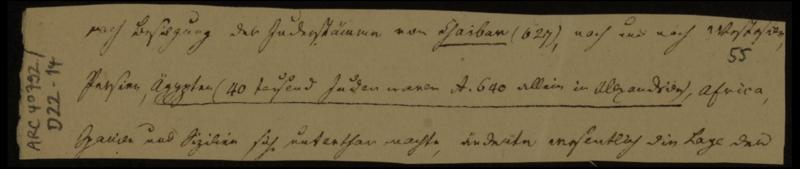 nach Besiegung der Judenstämme von Chaibar (627), nach und nach Westasien,
55
Persien, Ägypten (40 tausend Juden waren A. 640 allein in Alexandrien), Africa,
Spanien und Sizilien sich unterthan machte, änderte wesentlich die Lage der
ARC 4o 792/
D22-14